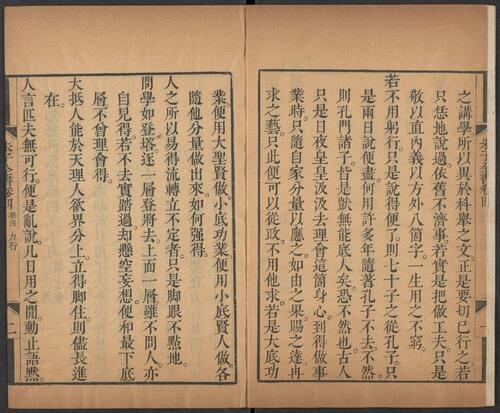 之講學所以異於科舉之文正是要切己行之若
只恁地說過依舊不濟事若實是把做工夫只是
敬以直內義以方外八箇字一生用之不窮
若不用躬行只是說得便了則七十子之從孔子只
是兩日說便盡何用許多年隨著孔子不去不然
則孔門諸子皆是獃無能底人矣恐不然也古人
只是日夜皇皇汲汲去理會這箇身心到得做事
業時只隨自家分量以應之如由之果賜之達冉
求之藝只此便可以從政不用他求若是大底功
朱子全書卷四
一
業便用大聖賢做小底功業便用小底賢人做各
隨他分量做出來如何強得
人之所以易得流轉立不定者只是脚跟不點地
問學如登塔逐一層登將去上面一層雖不問人亦
自見得若不去實踏過却懸空妄想便和最下底
層不曾理會得
大抵人能於天理人欲界分上立得脚住則儘長進
在
人言匹夫無可行便是亂說凡日用之間動止語黙
朱子全書卷四
學四
力行
二